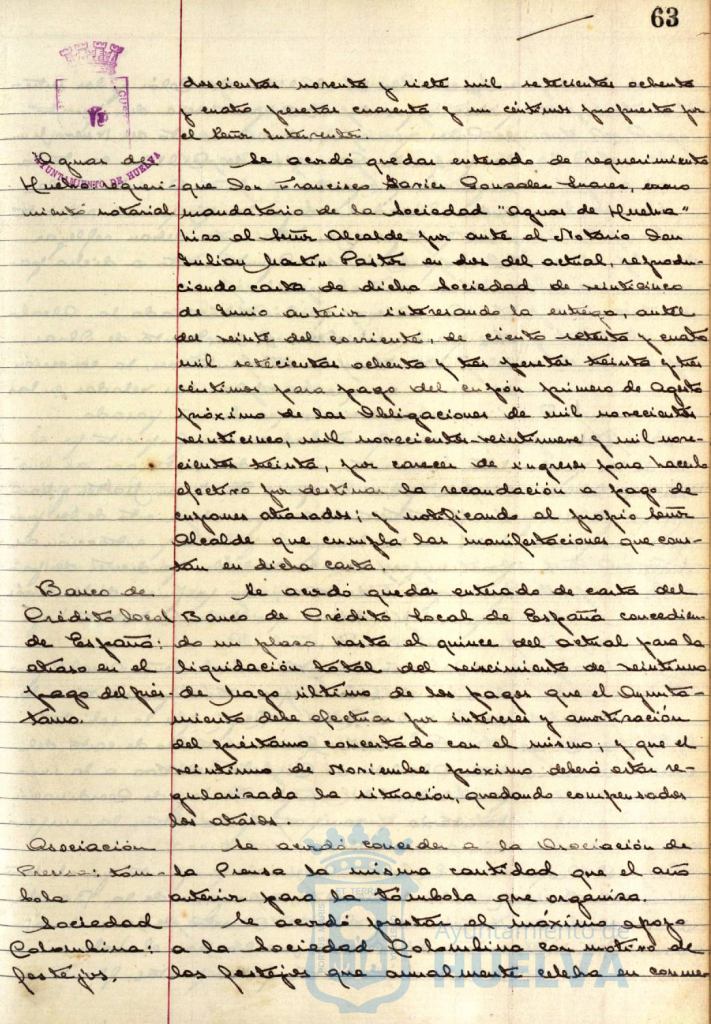 63
doscientas noventa y siete mil setecientas ochenta
y cuatro pesetas cuarenta y un céntimos propuesto por
el Señor Interventor.
AYUNTAMIENTO DE HUELVA
Aguas de
Huelva requeri-
miento notarial
Se acordó quedar enterado de requerimiento
que Don Francisco Javier Gonzalez Suarez, como
mandatario de la Sociedad "Aguas de Huelva"
hizo al Señor Alcalde por ante el Notario Don
Julian Martin Pastor en dos del actual, reprodu-
ciendo carta de dicha Sociedad de veinticinco
de Junio anterior interesando la entrega, antes
del veinte del corriente, de ciento setenta y cuatro
mil setecientas ochenta y tres pesetas treinta y tres
céntimos para pago del cupón primero de Agosto
próximo de las Obligaciones de mil novecientos
veinticinco, mil novecientos veintinueve y mil nove-
cientos treinta, por carecer de ingresos para hacerlo
efectivo por destinar la recaudación a pago de
cupones atrasados; y notificando al propio Señor
Alcalde que cumpla las manifestaciones que cons-
tan en dicha carta.
Banco de
Crédito local
de España:
atraso en el
pago del prés-
tamo.
Se acordó quedar enterado de carta del
Banco de Crédito Local de España concedien-
do un plazo hasta el quince del actual para la
liquidación total del vencimiento de veintiuno
de Mayo último de los pagos que el Ayunta-
miento debe efectuar por intereses y amortización
del préstamo concertado con el mismo; y que el
veintiuno de Noviembre próximo deberá estar re-
gularizada la situación, quedando compensados
los atrasos.
Asociación
Prensa: tóm-
bola
Se acordó conceder a la Asociación de
la Prensa la misma cantidad que el año
anterior para la tómbola que organiza.
Sociedad
Colombina:
festejos.
Se acordó prestar el máximo apoyo
a la Sociedad Colombina con motivo de
los festejos que anualmente celebra en conme-
Ayuntamiento de
HUELVA